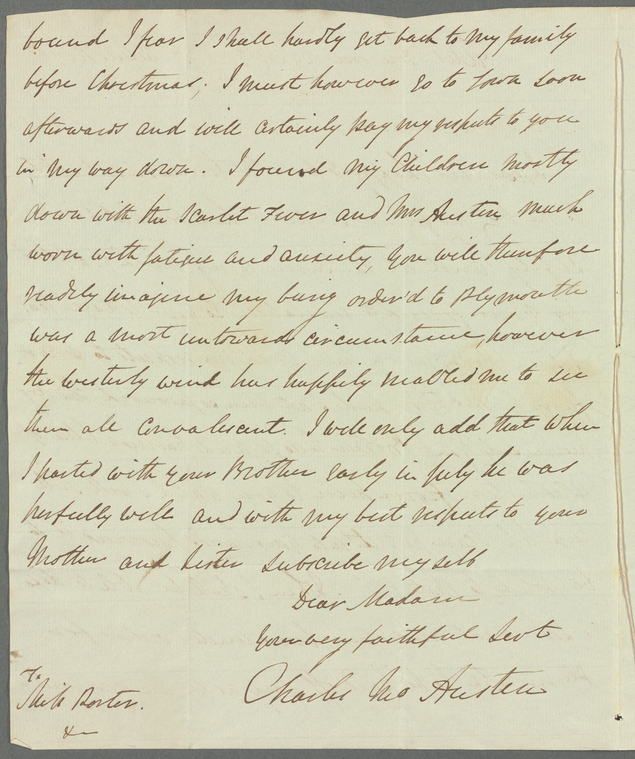 bound I fear I shall hardly get back to my family
before Christmas; I must however go to Town soon
afterwards and will certainly pay my respects to you
in my way down. I found my Children mostly
down with the Scarlet Fever and Mrs Austen much
worn with fatigue and anxiety, you will therefore
readily imagine my being order'd to Plymouth
was a most untoward circumstance, however
the westerly wind has happily enabled me to see
them all convalescent. I will only add that when
I parted with your Brother early in July he was
perfectly well and with my best respects to your
Mother and Sister subscribe myself
Dear Madam
Your very faithful Servt
Charles Jno Austen
To
Miss Porter.
&c